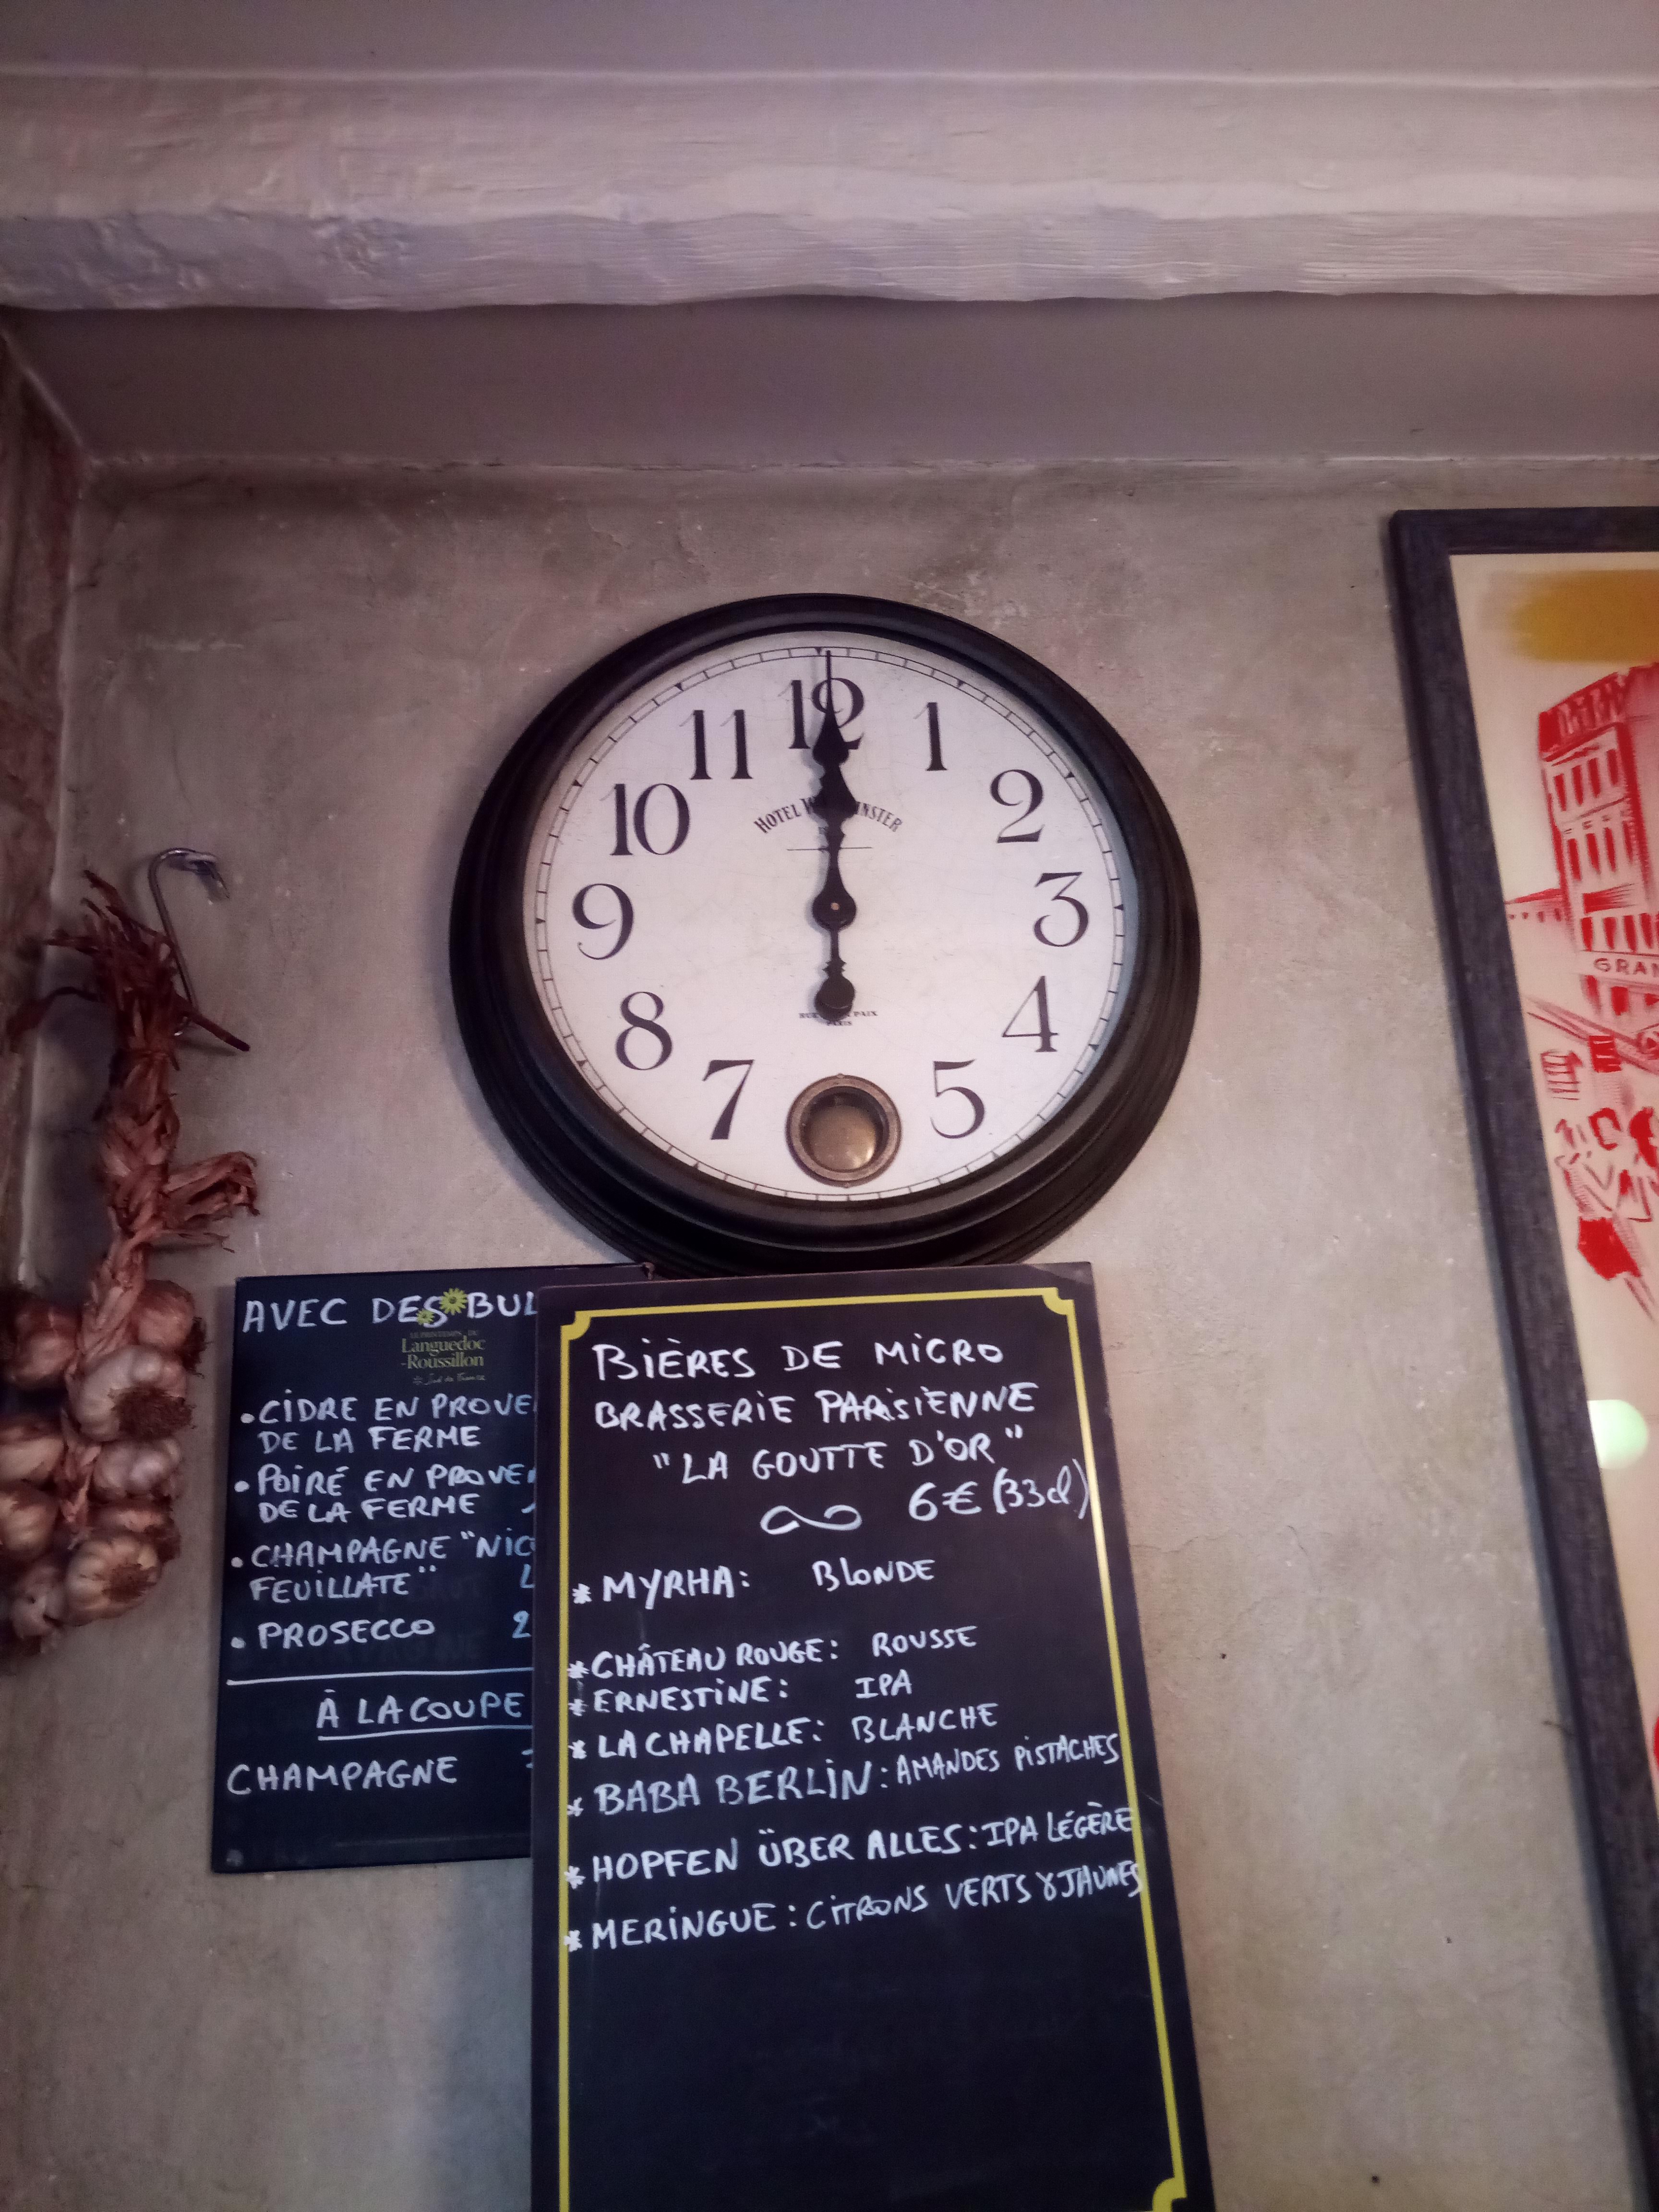 12
11 1
10 2
HOTEL
9 3
8 4
PARIS
7 5
AVEC DES
LE PRINTEMPS DU
Languedoc
-Roussillon
Sud de France
• CIDRE EN
DE LA FERME
• POIRÉ EN
DE LA FERME
• CHAMPAGNE
FEUILLATE"
• PROSECCO
À LA COUPE
CHAMPAGNE
BIÈRES DE MICRO
BRASSERIE PARISIENNE
"LA GOUTTE D'OR"
6€ (33cl)
* MYRHA: BLONDE
* CHÂTEAU ROUGE: ROUSSE
* ERNESTINE: IPA
* LA CHAPELLE: BLANCHE
* BABA BERLIN: AMANDES PISTACHES
* HOPFEN ÜBER ALLES: IPA LÉGÈRE
* MERINGUE: CITRONS VERTS & JAUNES